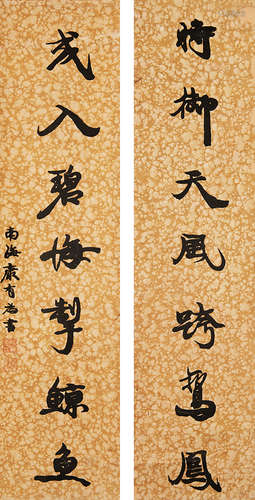 時御天風跨鸞鳳
或入碧海掣鯨魚
南海康有為書